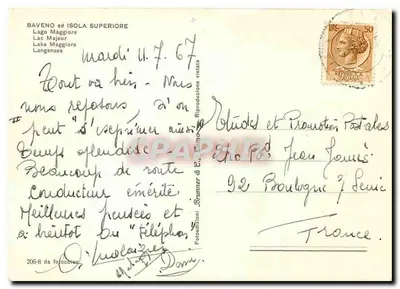 BAVENO ed ISOLA SUPERIORE
Lago Maggiore
Lac Majeur
Lake Maggiore
Langensee
mardi 11.7.67
Tout va bien - Nous
nous reposons, si l'on
peut "s'exprimer ainsi"
Temps splendide -
Beaucoup de route
Conducteur émérite
Meilleures pensées et
à bientôt au "Téléphos"
50
Etudes et Promotion Postales
Jean Jaurès
92 Boulogne s/ Seine
France.
Fotoedizioni Brunner & C., Como - Riproduzione vietata
206-8 da fotocolor